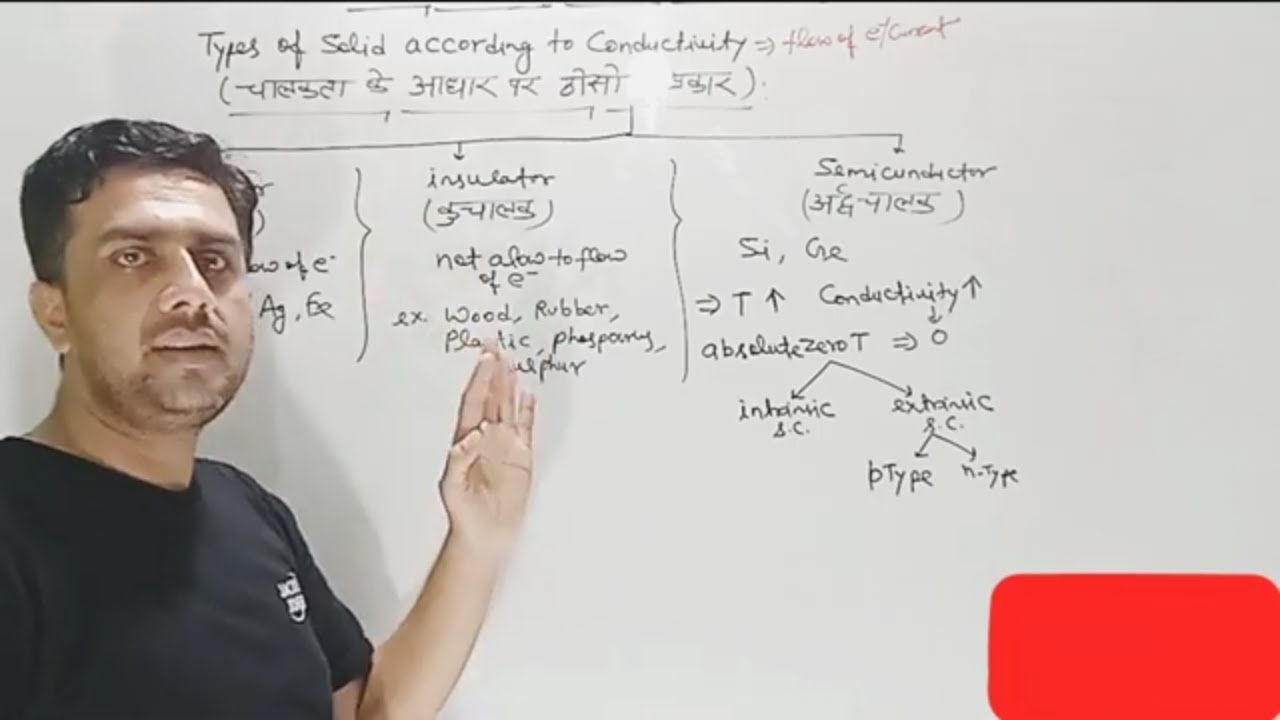 Types of Solid according to Conductivity ⇒ flow of e⁻/Current
(चालकता के आधार पर ठोसो प्रकार).
insulator
(कुचालक)
not alow to flow
of e⁻
ex. Wood, Rubber,
Plastic, phosporus,
ulphur
ow of e⁻
Ag, Fe
Semiconductor
(अर्द्धचालक)
Si, Ge
⇒ T ↑ Conductivity ↑
absolute zero T ⇒ 0
intrinsic
s.C.
extrinsic
s.C.
pType n-Type